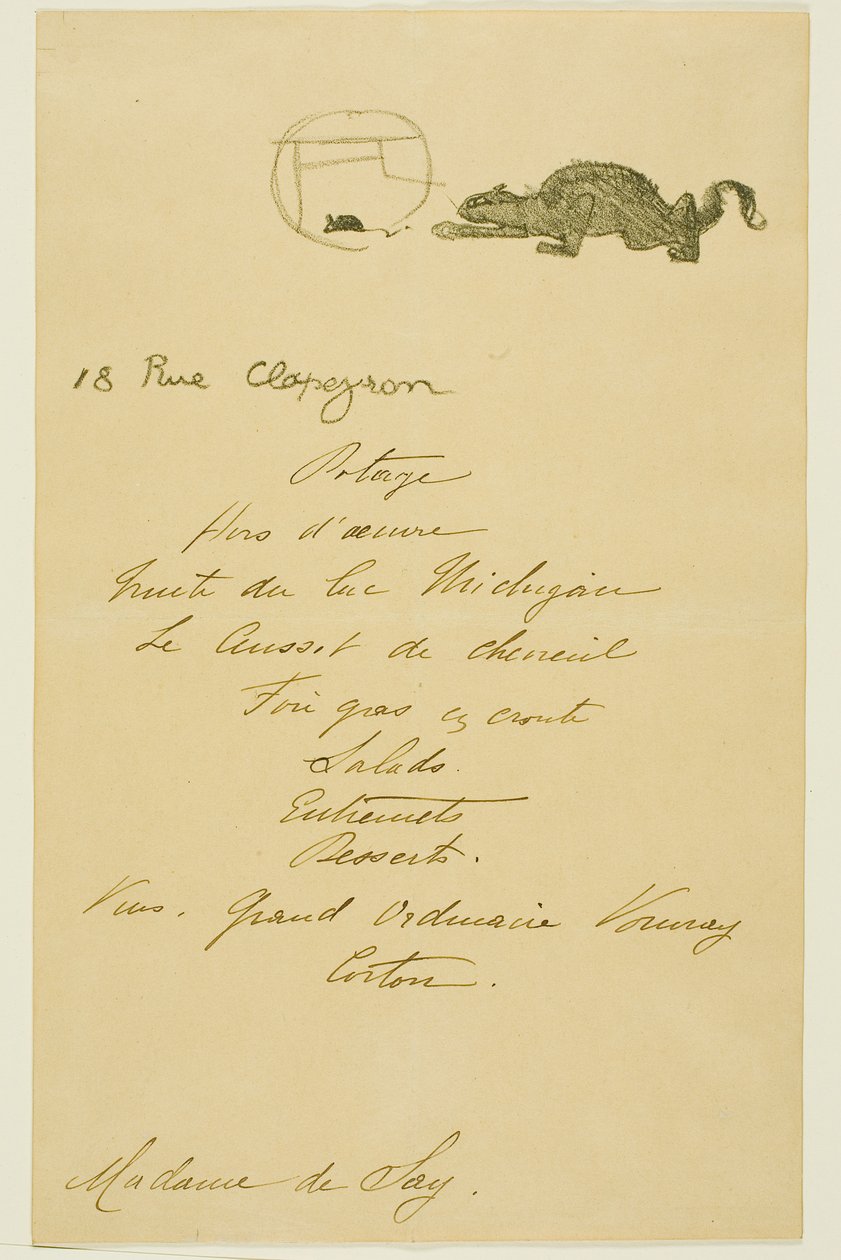 18 Rue Clapeyron
Potage
Hors d'œuvre
Truite du lac Michigan
Le Cuissot de chevreuil
Foie gras en croute
Salads.
Entremets
Desserts.
Vins. Grand Ordinaire Vouvray
Corton.
Madame de Say.